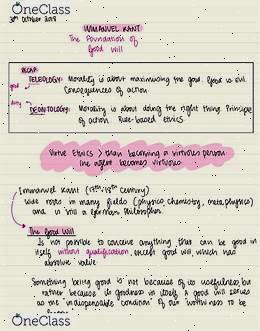 OneClass
30th October 2018
IMMANUEL KANT
The Foundation of
Good Will
RECAP
goal
TELEOLOGY: Morality is about maximising the good. Good vs evil.
Consequences of action.
duty
DEONTOLOGY: Morality is about doing the right thing. Principle
of action. Rule-based ethics
Virtue Ethics > than becoming a virtuous person
the agent becomes virtuous
Immanuel Kant (17th-18th century)
Wide roots in many fields (physics, chemistry, metaphysics)
and is still a German philosopher.
The Good Will
Is not possible to conceive anything that can be good in
itself without qualification, except good will, which has
absolute value
Something being good is not because of its usefulness, but
rather because its goodness in itself. A good will serves
as the 'indispensable condition' of our worthiness to be
OneClass